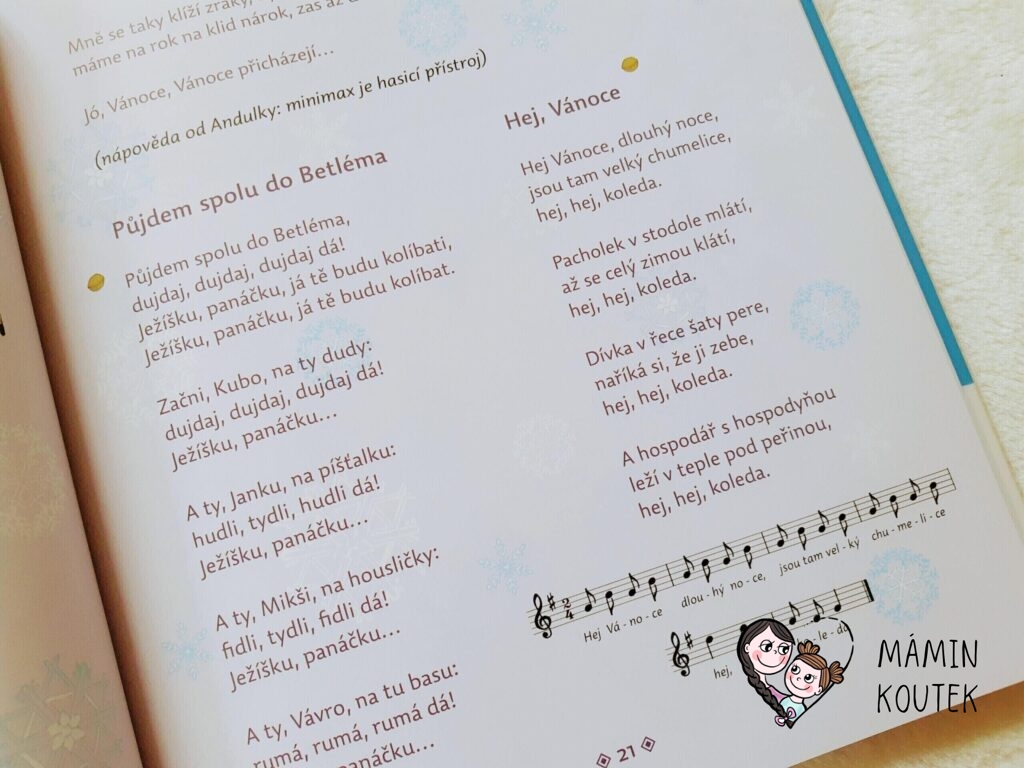 Mně se taky klíží zraky,
máme na rok na klid nárok, zas až
Jó, Vánoce, Vánoce přicházejí...
(nápověda od Andulky: minimax je hasicí přístroj)
Půjdem spolu do Betléma
Půjdem spolu do Betléma,
dujdaj, dujdaj, dujdaj dá!
Ježíšku, panáčku, já tě budu kolíbati,
Ježíšku, panáčku, já tě budu kolíbat.
Začni, Kubo, na ty dudy:
dujdaj, dujdaj, dujdaj dá!
Ježíšku, panáčku...
A ty, Janku, na píšťalku:
hudli, tydli, hudli dá!
Ježíšku, panáčku...
A ty, Mikši, na housličky:
fidli, tydli, fidli dá!
Ježíšku, panáčku...
A ty, Vávro, na tu basu:
rumá, rumá, rumá dá!
panáčku...
Hej, Vánoce
Hej Vánoce, dlouhý noce,
jsou tam velký chumelice,
hej, hej, koleda.
Pacholek v stodole mlátí,
až se celý zimou klátí,
hej, hej, koleda.
Dívka v řece šaty pere,
naříká si, že ji zebe,
hej, hej, koleda.
A hospodář s hospodyňou
leží v teple pod peřinou,
hej, hej, koleda.
2
4
Hej Vá - no - ce dlou - hý no - ce, jsou tam vel - ký chu - me - li - ce
hej, - le - da
21
MÁMIN
KOUTEK